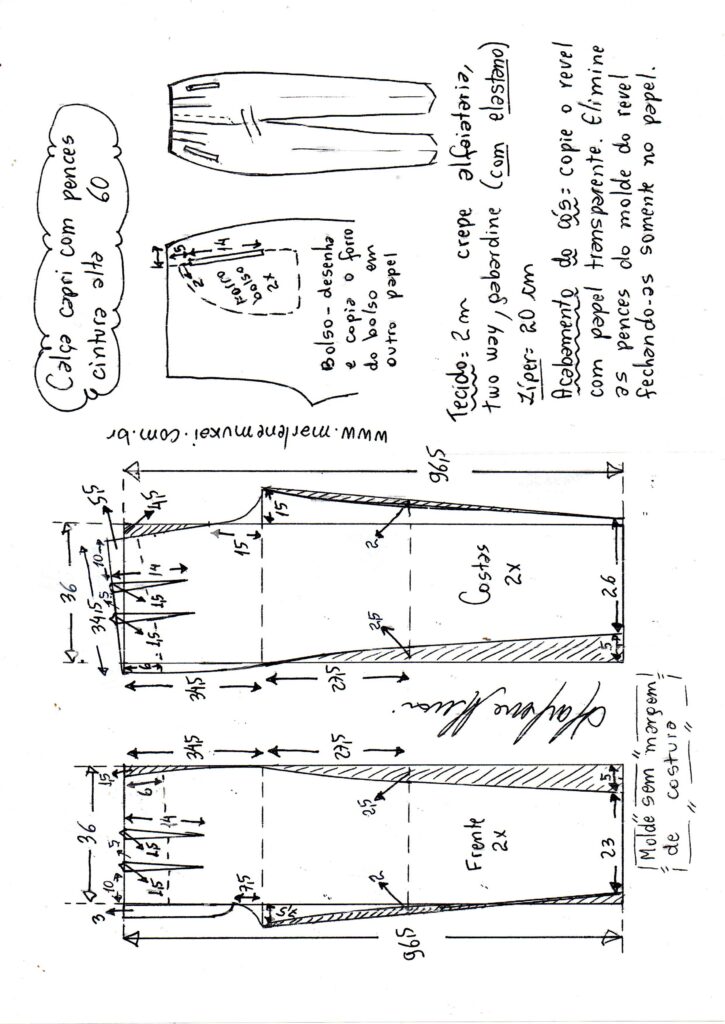 Calça capri com pences
cintura alta 60
Bolso - desenha
e copia o forro
do bolso em
outro papel
Forro
bolso
2x
2
5
14
www.marlenemukai.com.br
Tecido = 2 m crepe alfaiataria,
two way, gabardine (com elastano)
Zíper = 20 cm
Acabamento do cós = copie o revel
com papel transparente. Elimine
as pences do molde do revel
fechando-as somente no papel.
96,5
36
34,5
5,5
4,5
10
5
1,5
1,5
14
6
15
15
34,5
27,5
2
2,5
Costas
2x
26
5
96,5
36
3
10
5
1,5
1,5
1,5
14
6
7,5
34,5
27,5
2
2,5
Frente
2x
23
5
Molde sem margem
de costura